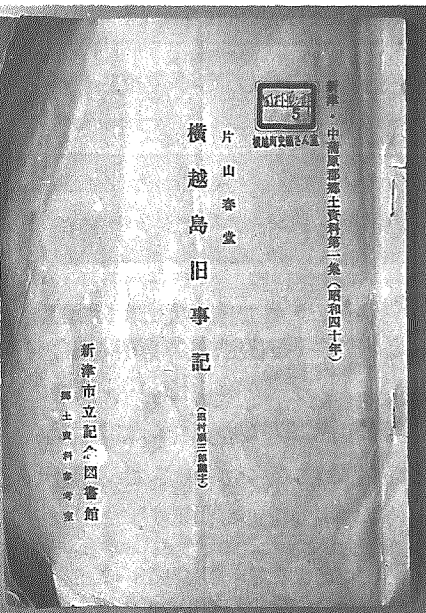 新津・中蒲原郡郷土資料第一集(昭和四十年)
5
横越町史編さん室
片山春堂
横越島旧事記
新津市立記念図書館
郷土資料参考室